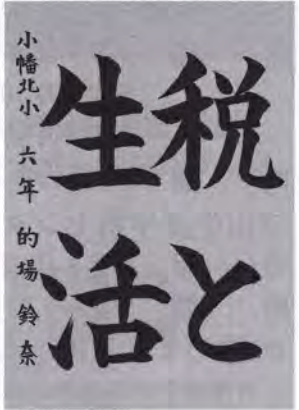 税と
生活
小幡北小 六年 的場 鈴奈